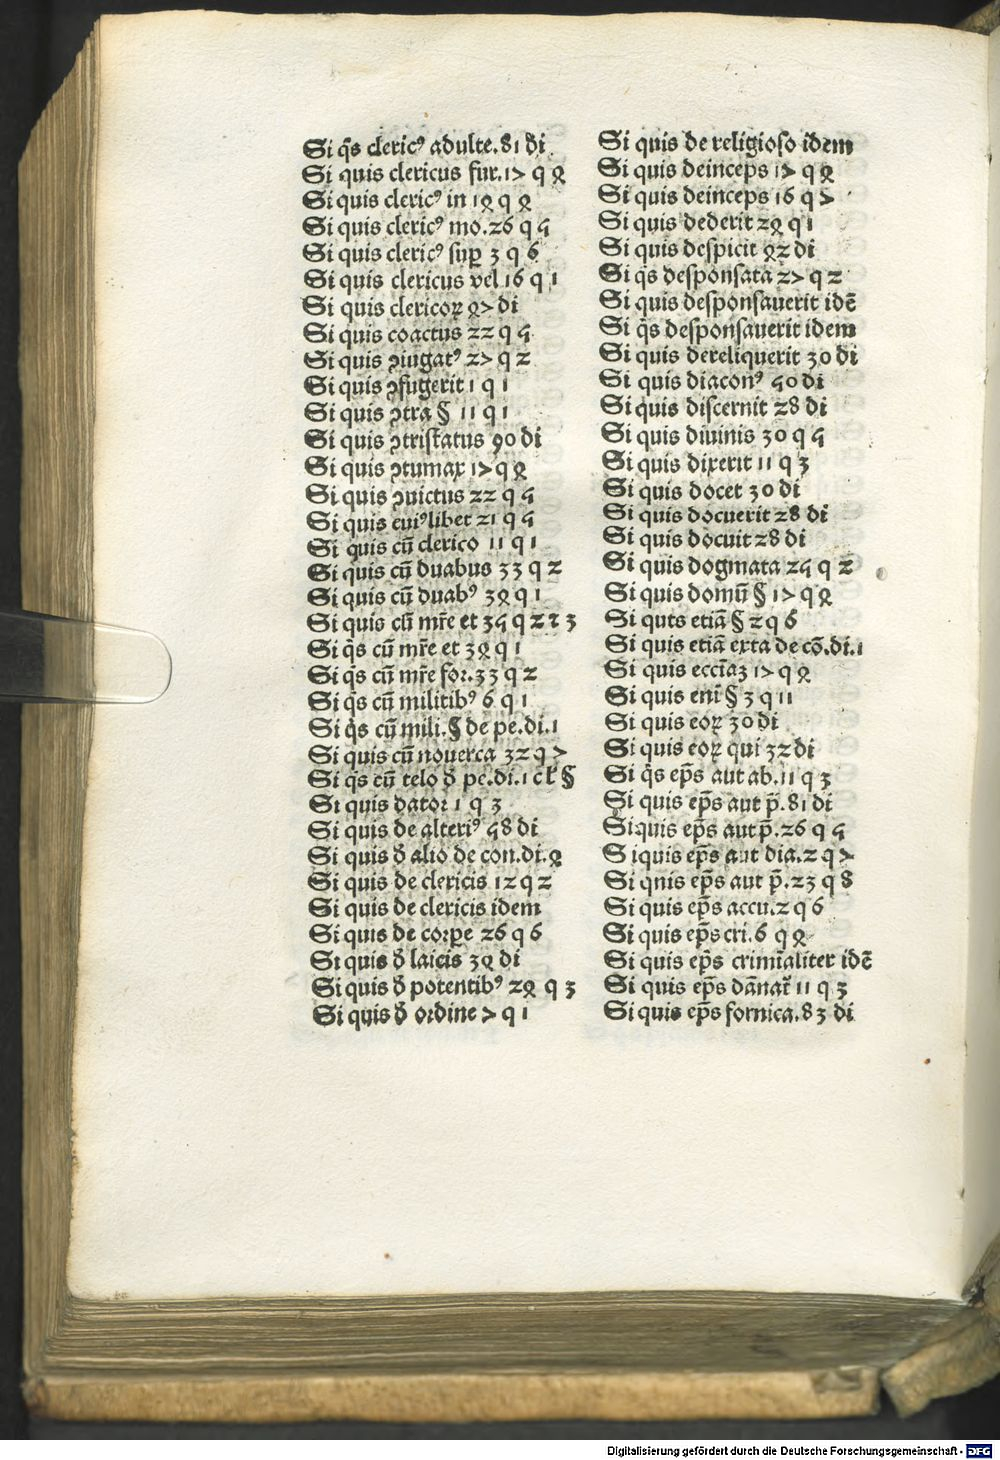 Si q̃s cleric⁹ adulte.81 di
Si quis clericus fur.17 q 4
Si quis cleric⁹ in 14 q 4
Si quis cleric⁹ mo.26 q 5
Si quis cleric⁹ suꝑ 3 q 6
Si quis clericus vel 16 q 1
Si quis clericoꝝ 47 di
Si quis coactus 22 q 5
Si quis ꝯiugat⁹ 27 q 2
Si quis ꝯfugerit 1 q 1
Si quis ꝯtra § 11 q 1
Si quis ꝯtristatus 90 di
Si quis ꝯtumax 17 q 4
Si quis ꝯuictus 22 q 5
Si quis cui⁹libet 21 q 5
Si quis cū clerico 11 q 1
Si quis cū duabus 33 q 2
Si quis cū duab⁹ 34 q 1
Si quis cū mr̃e et 35 q 2 ⁊ 3
Si q̃s cū mr̃e et 34 q 1
Si q̃s cū mr̃e for.33 q 2
Si q̃s cū militib⁹ 6 q 1
Si q̃s cū mili.¶ de pe.di.1
Si quis cū nouerca 32 q 7
Si q̃s cū telo đ pe.di.1 cł §
Si quis dator 1 q 3
Si quis de alteri⁹ 58 di
Si quis đ alio de con.di.4
Si quis de clericis 12 q 2
Si quis de clericis idem
Si quis de corꝑe 26 q 6
Si quis đ laicis 34 di
Si quis đ potentib⁹ 24 q 3
Si quis đ ordine 7 q 1
Si quis de religioso idem
Si quis deinceps 17 q 4
Si quis deinceps 16 q 7
Si quis dederit 24 q 1
Si quis despicit 42 di
Si q̃s desponsata 27 q 2
Si quis desponsauerit idē
Si q̃s desponsauerit idem
Si quis dereliquerit 30 di
Si quis diacon⁹ 50 di
Si quis discernit 28 di
Si quis diuinis 30 q 5
Si quis dixerit 11 q 3
Si quis docet 30 di
Si quis docuerit 28 di
Si quis docuit 28 di
Si quis dogmata 25 q 2
Si quis domū § 17 q 4
Si quts etiā § 2 q 6
Si quis etiā exta de cō.di.1
Si quis ecctīaꝫ 17 q 4
Si quis enī § 3 q 11
Si quis eoꝝ 30 di
Si quis eoꝝ qui 32 di
Si q̃s ep̃s aut ab.11 q 3
Si quis ep̃s aut p̃.81 di
Si quis ep̃s aut p̃.26 q 5
S iquis ep̃s aut dia.2 q 7
Si qnis ep̃s aut p̃.23 q 8
Si quis ep̃s accu.2 q 6
Si quis ep̃s cri.6 q 4
Si quis ep̃s crimīaliter idē
Si quis ep̃s dānat̃ 11 q 3
Si quis ep̃s fornica.83 di
Digitalisierung gefördert durch die Deutsche Forschungsgemeinschaft - DFG